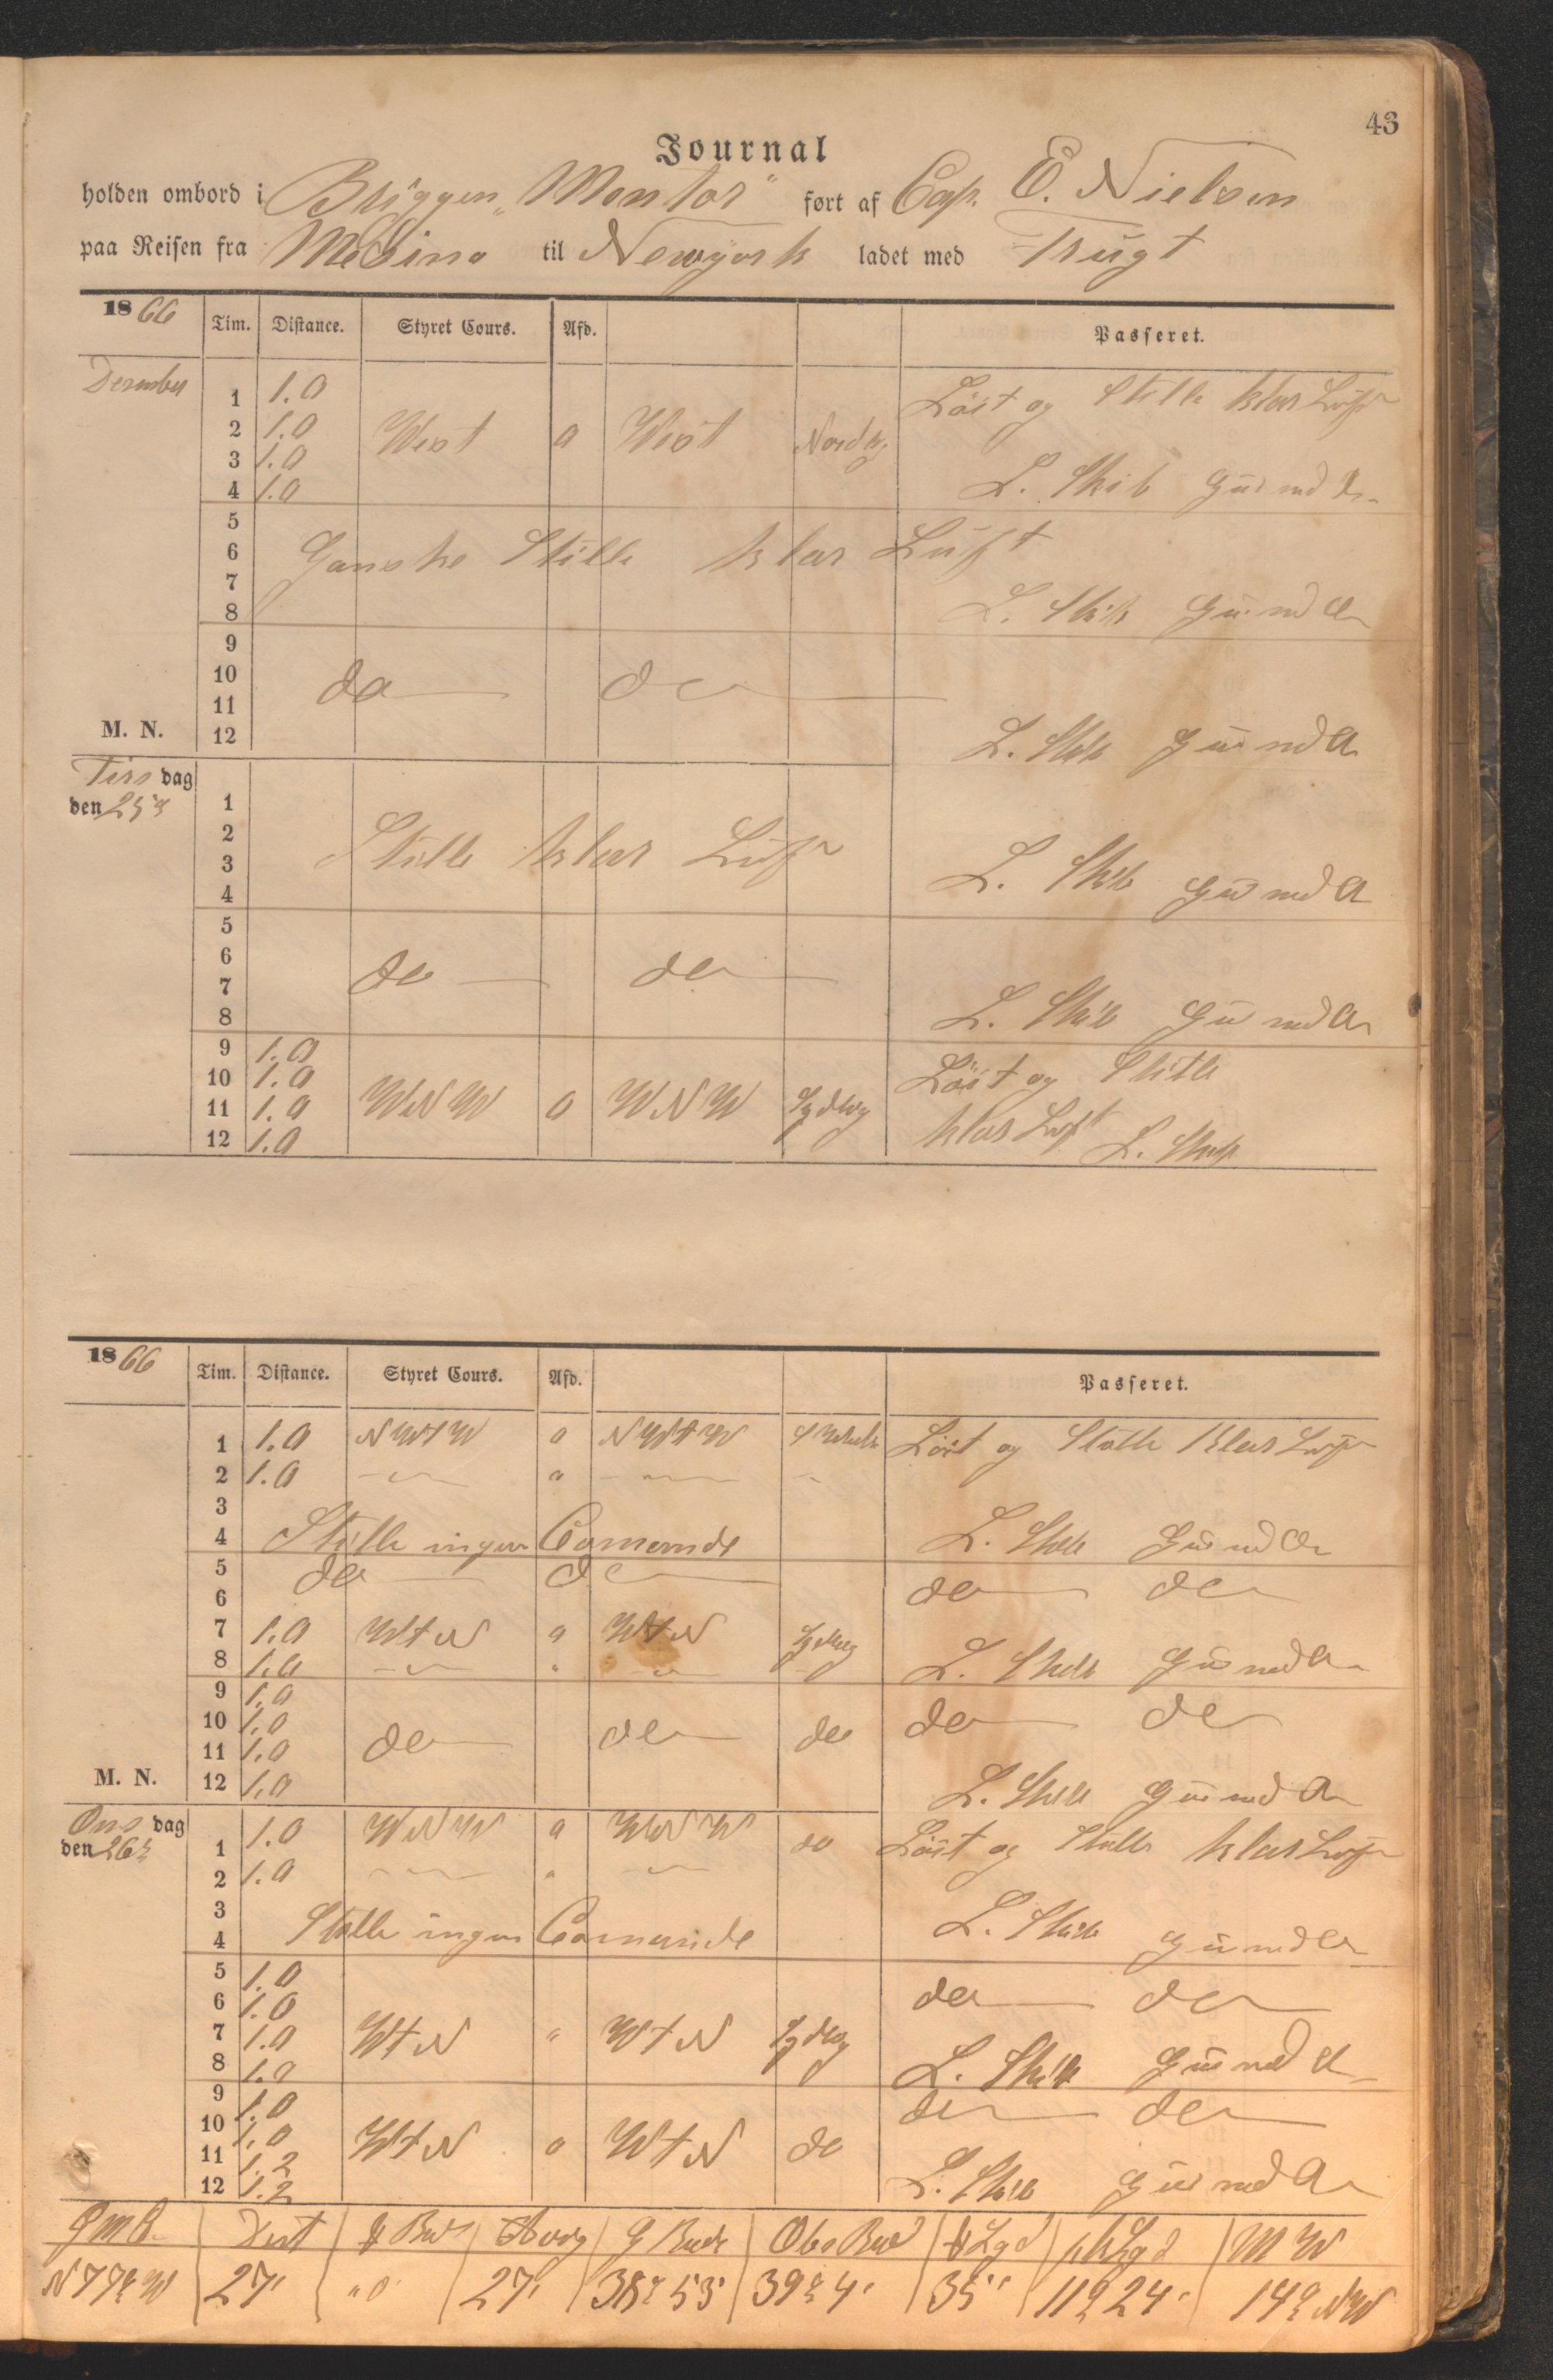 43
Journal
holden ombord i Briggen „Mentor" ført af Cap. E. Nielsen
paa Reisen fra Mesina til Newyork ladet med Frugt
1866 Tim. Distance. Styret Cours. Afd. Passeret.
December
1 1.0 Löst og Stille klar Luft
2 1.0 West 0 West Nordlg
3 1.0
4 1.0 L. Skib
5
6 Ganske Stille klar Luft
7
8 L. Skib
9
10 do do
11
M. N. 12 L. Skib
Tirsdag
den 25de
1
2
3 Stille klar Luft
4 L. Skib
5
6 do do
7
8 L. Skib
9 1.0
10 1.0 Löst og Stille
11 1.0 WNW 0 WNW Sydlig klar Luft
12 1.0 L. Skib
1866 Tim. Distance. Styret Cours. Afd. Passeret.
1 1.0 NWtW 0 NWtW Löst og Stille Klar Luft
2 1.0 — " — —
3
4 Stille ingen Comande L. Skib
5 do do do do
6
7 1.0 WtN 0 WtN Sydlig
8 1.0 — " — — L. Skib
9 1.0
10 1.0 do do do do do
11 1.0
M. N. 12 1.0 L. Skib
Onsdag
den 26de
1 1.0 WNW 0 WNW do Löst og Stille klar Luft
2 1.0 — " —
3
4 Stille ingen Comande L. Skib
5 1.0
6 1.0 do do
7 1.0 WtN " WtN Sydlig
8 1.0 L. Skib
9 1.0 do do
10 1.0 WtN 0 WtN do
11 1.2
12 1.2 L. Skib
Dist G Brede Obs Bred MW
N77°W 27' "0' 27' 38° 53' 39° 4' 35" 11° 24' 14° NW